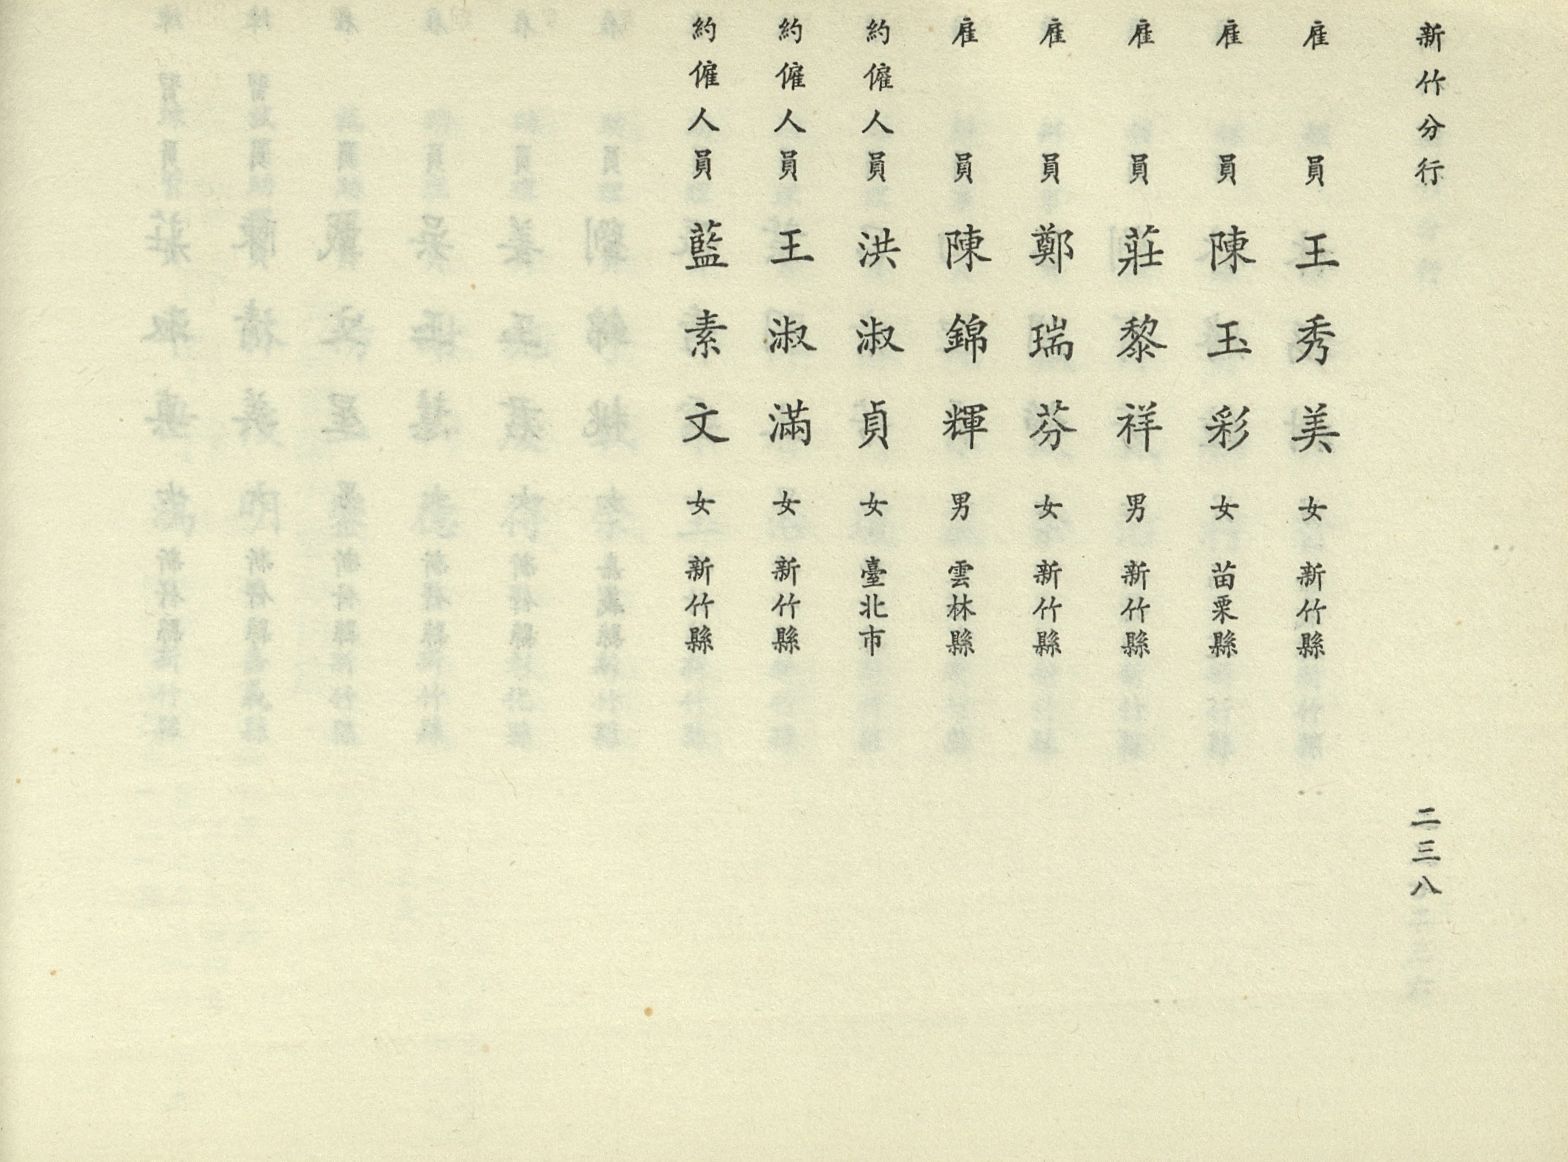 新竹分行 二三八
雇員 王秀美 女 新竹縣
雇員 陳玉彩 女 苗栗縣
雇員 莊黎祥 男 新竹縣
雇員 鄭瑞芬 女 新竹縣
雇員 陳錦輝 男 雲林縣
約僱人員 洪淑貞 女 臺北市
約僱人員 王淑滿 女 新竹縣
約僱人員 藍素文 女 新竹縣